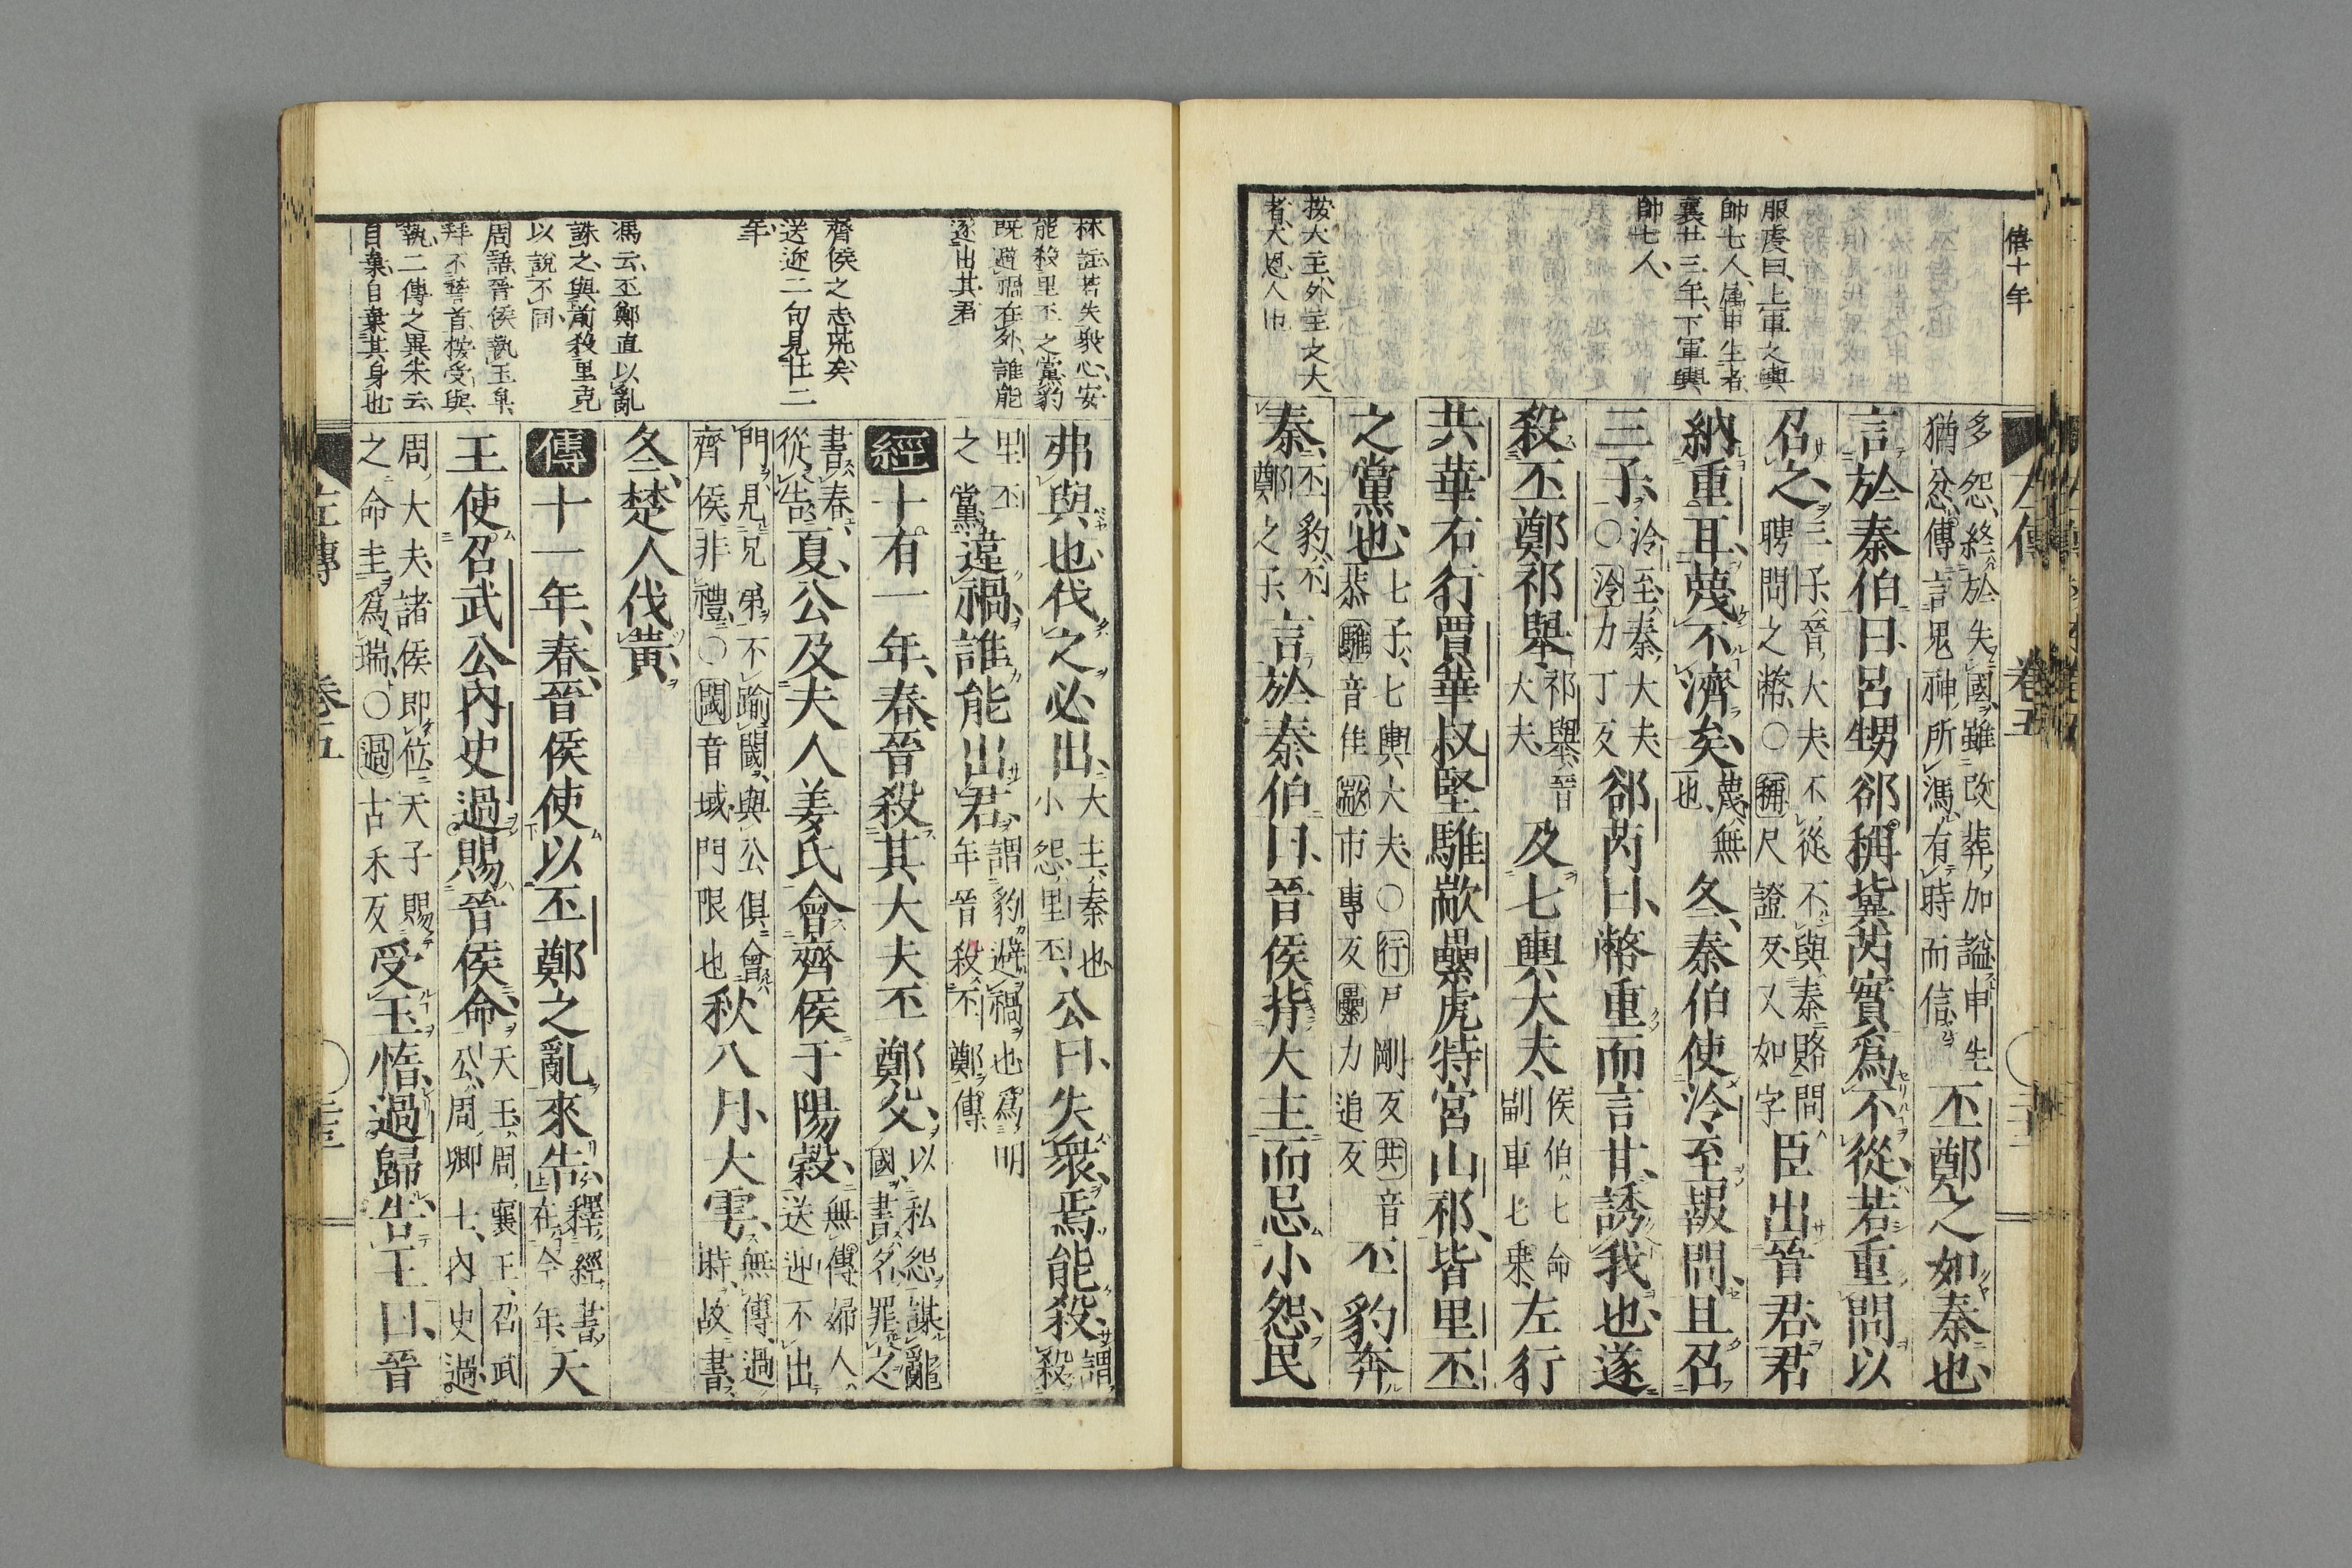 僖十年
服虔曰、上軍之輿
帥七人、屬申生者
襄廿三年、下軍輿
帥七人、
按大主、外主之大
者、大恩人也
左傳 卷五
多怨、終於失國、雖改葬、加謚、申生
猶忿、傳言鬼神所馮、有時而信、
丕鄭之如秦也、
言於秦伯曰、呂甥郤稱冀芮實爲不從、若重問以
召之、
三子、晉大夫、不從、不與秦賂、問
聘問之幣、○稱尺證反、又如字
臣出晉君、君
納重耳、蔑不濟矣、
蔑、無
也、
冬、秦伯使泠至報問、且召
三子、
泠至、秦大夫、
○泠力丁反
郤芮曰、幣重而言甘、誘我也、遂
殺丕鄭祁舉、
祁舉、晉
大夫、
及七輿大夫、
侯伯、七命
副車七乘、
左行
共華右行賈華叔堅騅歂纍虎特宮山祁、皆里丕
之黨也、
七子、七輿大夫、○行戶剛反共音
恭騅音隹歂市專反纍力追反
丕豹奔
秦、
丕豹、丕
鄭之子、
言於秦伯曰、晉侯背大主而忌小怨、民
林註若失衆心、安
能殺里丕之黨、豹
既避禍在外、誰能
逐出其君
齊侯之志荒矣、
送迎二句見廿二
年、
馮云、丕鄭直以亂
誅之、與前殺里克
以説不同
周語、晉侯執玉卑
拜不稽首、按受與
執、二傳之異、朱云、
自棄、自棄其身也
弗與也、伐之必出、
大主、秦也
小怨、里丕、
公曰、失衆、焉能殺、
謂殺
里丕
之黨、
違禍、誰能出君、
謂豹避禍也、爲明
年晉殺丕鄭傳
經十有一年、春、晉殺其大夫丕鄭父、
以私怨謀亂
國、書名、罪之
書春、
從告、
夏、公及夫人姜氏會齊侯于陽穀、
無傳、婦人
送迎不出
門、見兄弟不踰閾、與公俱會
齊侯、非禮、○閾音域門限也
秋八月、大雩、
無傳、過
時、故書、
冬、楚人伐黃、
傳十一年、春、晉侯使以丕鄭之亂來告、
釋經書
在今年、
天
王使召武公內史過賜晉侯命、
天王、周襄王、召武
公、周卿士、內史過、
周大夫、諸侯即位、天子賜
之命圭爲瑞、○過古禾反
受玉惰、過歸告王曰、晉
左傳 卷五